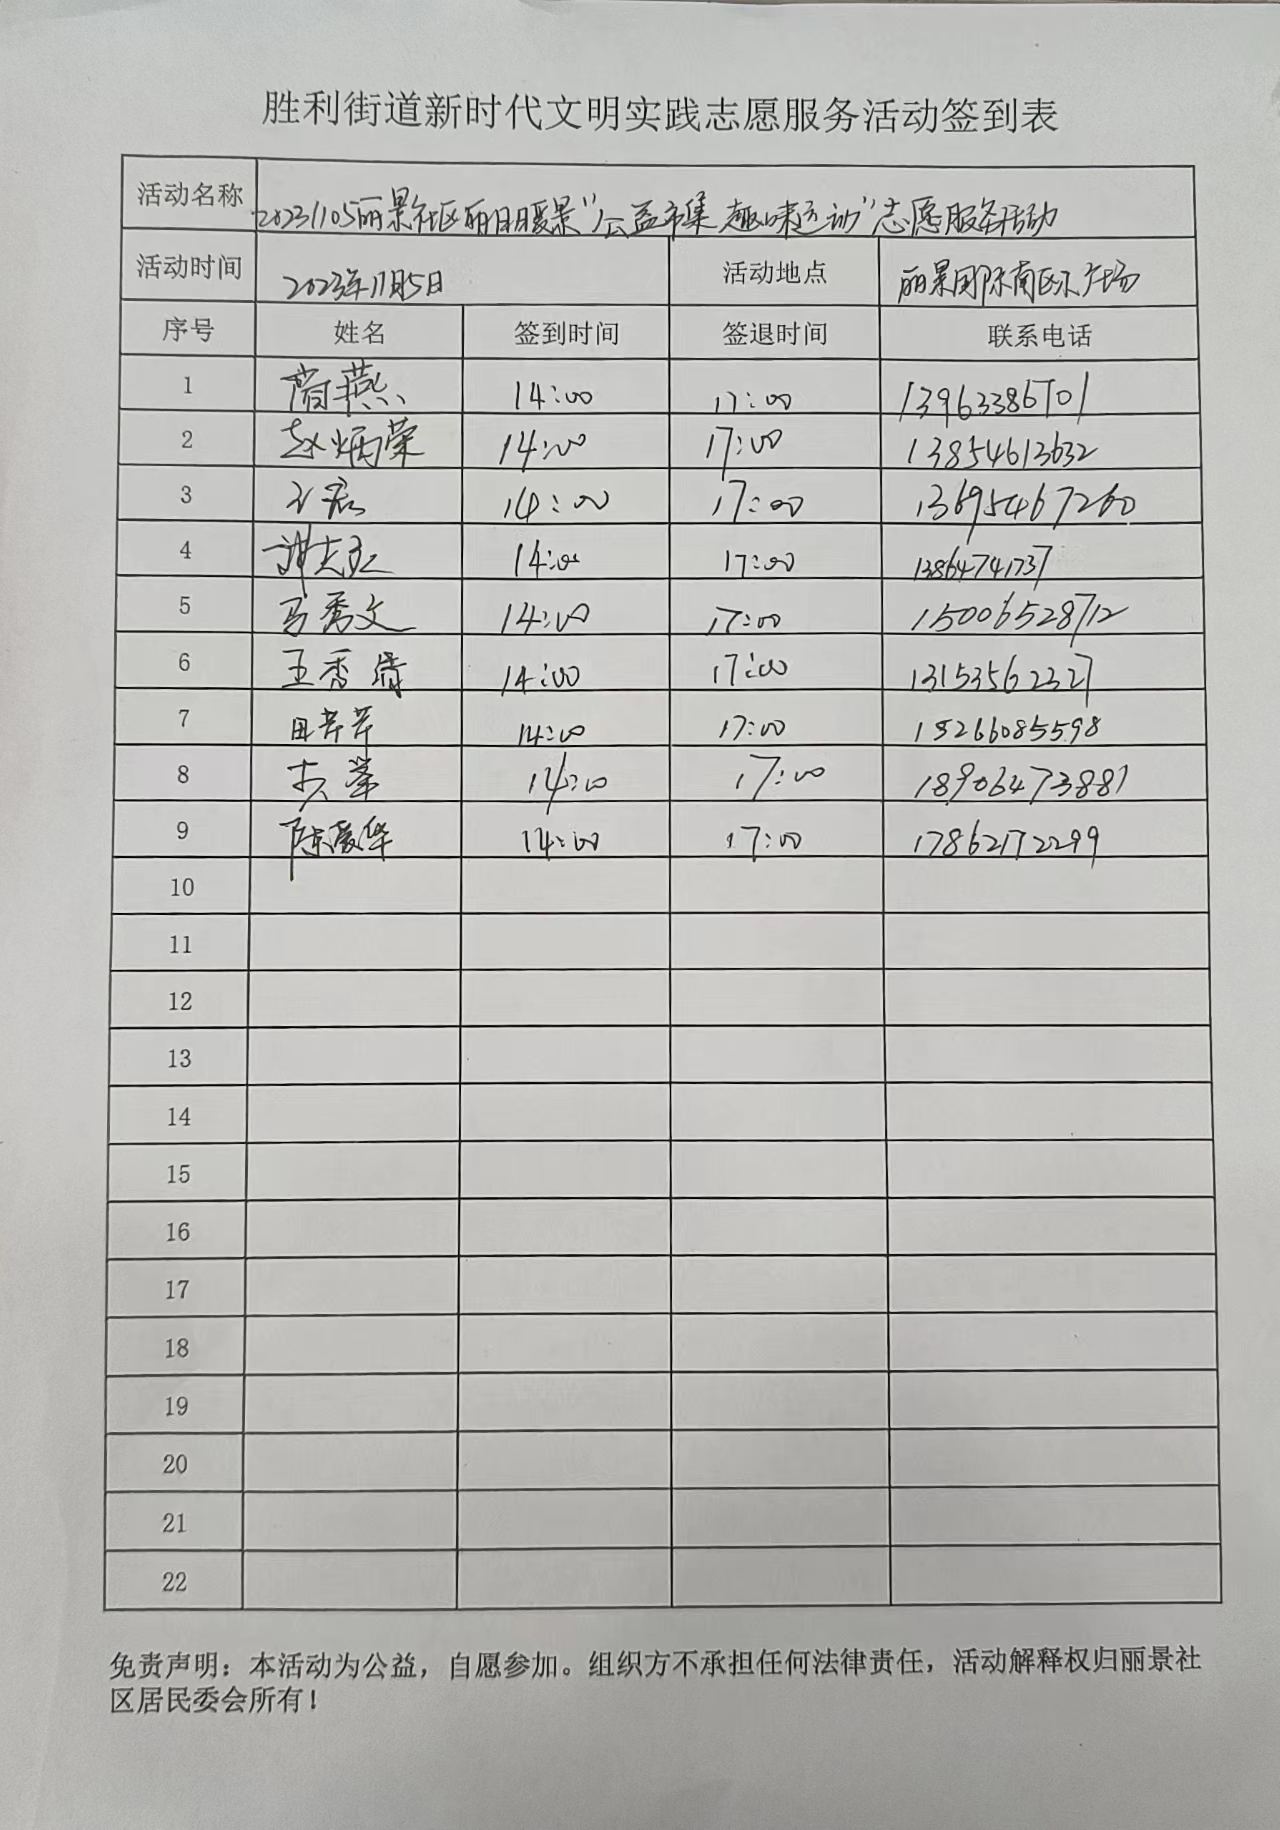 胜利街道新时代文明实践志愿服务活动签到表
活动名称 20231105丽景社区丽日暖景“公益市集 趣味运动”志愿服务活动
活动时间 2023年11月5日 活动地点 丽景国际南区小广场
序号 姓名 签到时间 签退时间 联系电话
1 14:00 17:00 13963386701
2 赵炳荣 14:00 17:00 13854613632
3 14:00 17:00 13695467260
4 14:00 17:00 13864741737
5 马秀文 14:00 17:00 15006528712
6 王香 14:00 17:00 13153562327
7 田芹芹 14:00 17:00 15266085598
8 14:00 17:00 18906473881
9 陈爱华 14:00 17:00 17862172299
10
11
12
13
14
15
16
17
18
19
20
21
22
免责声明：本活动为公益，自愿参加。组织方不承担任何法律责任，活动解释权归丽景社
区居民委会所有！